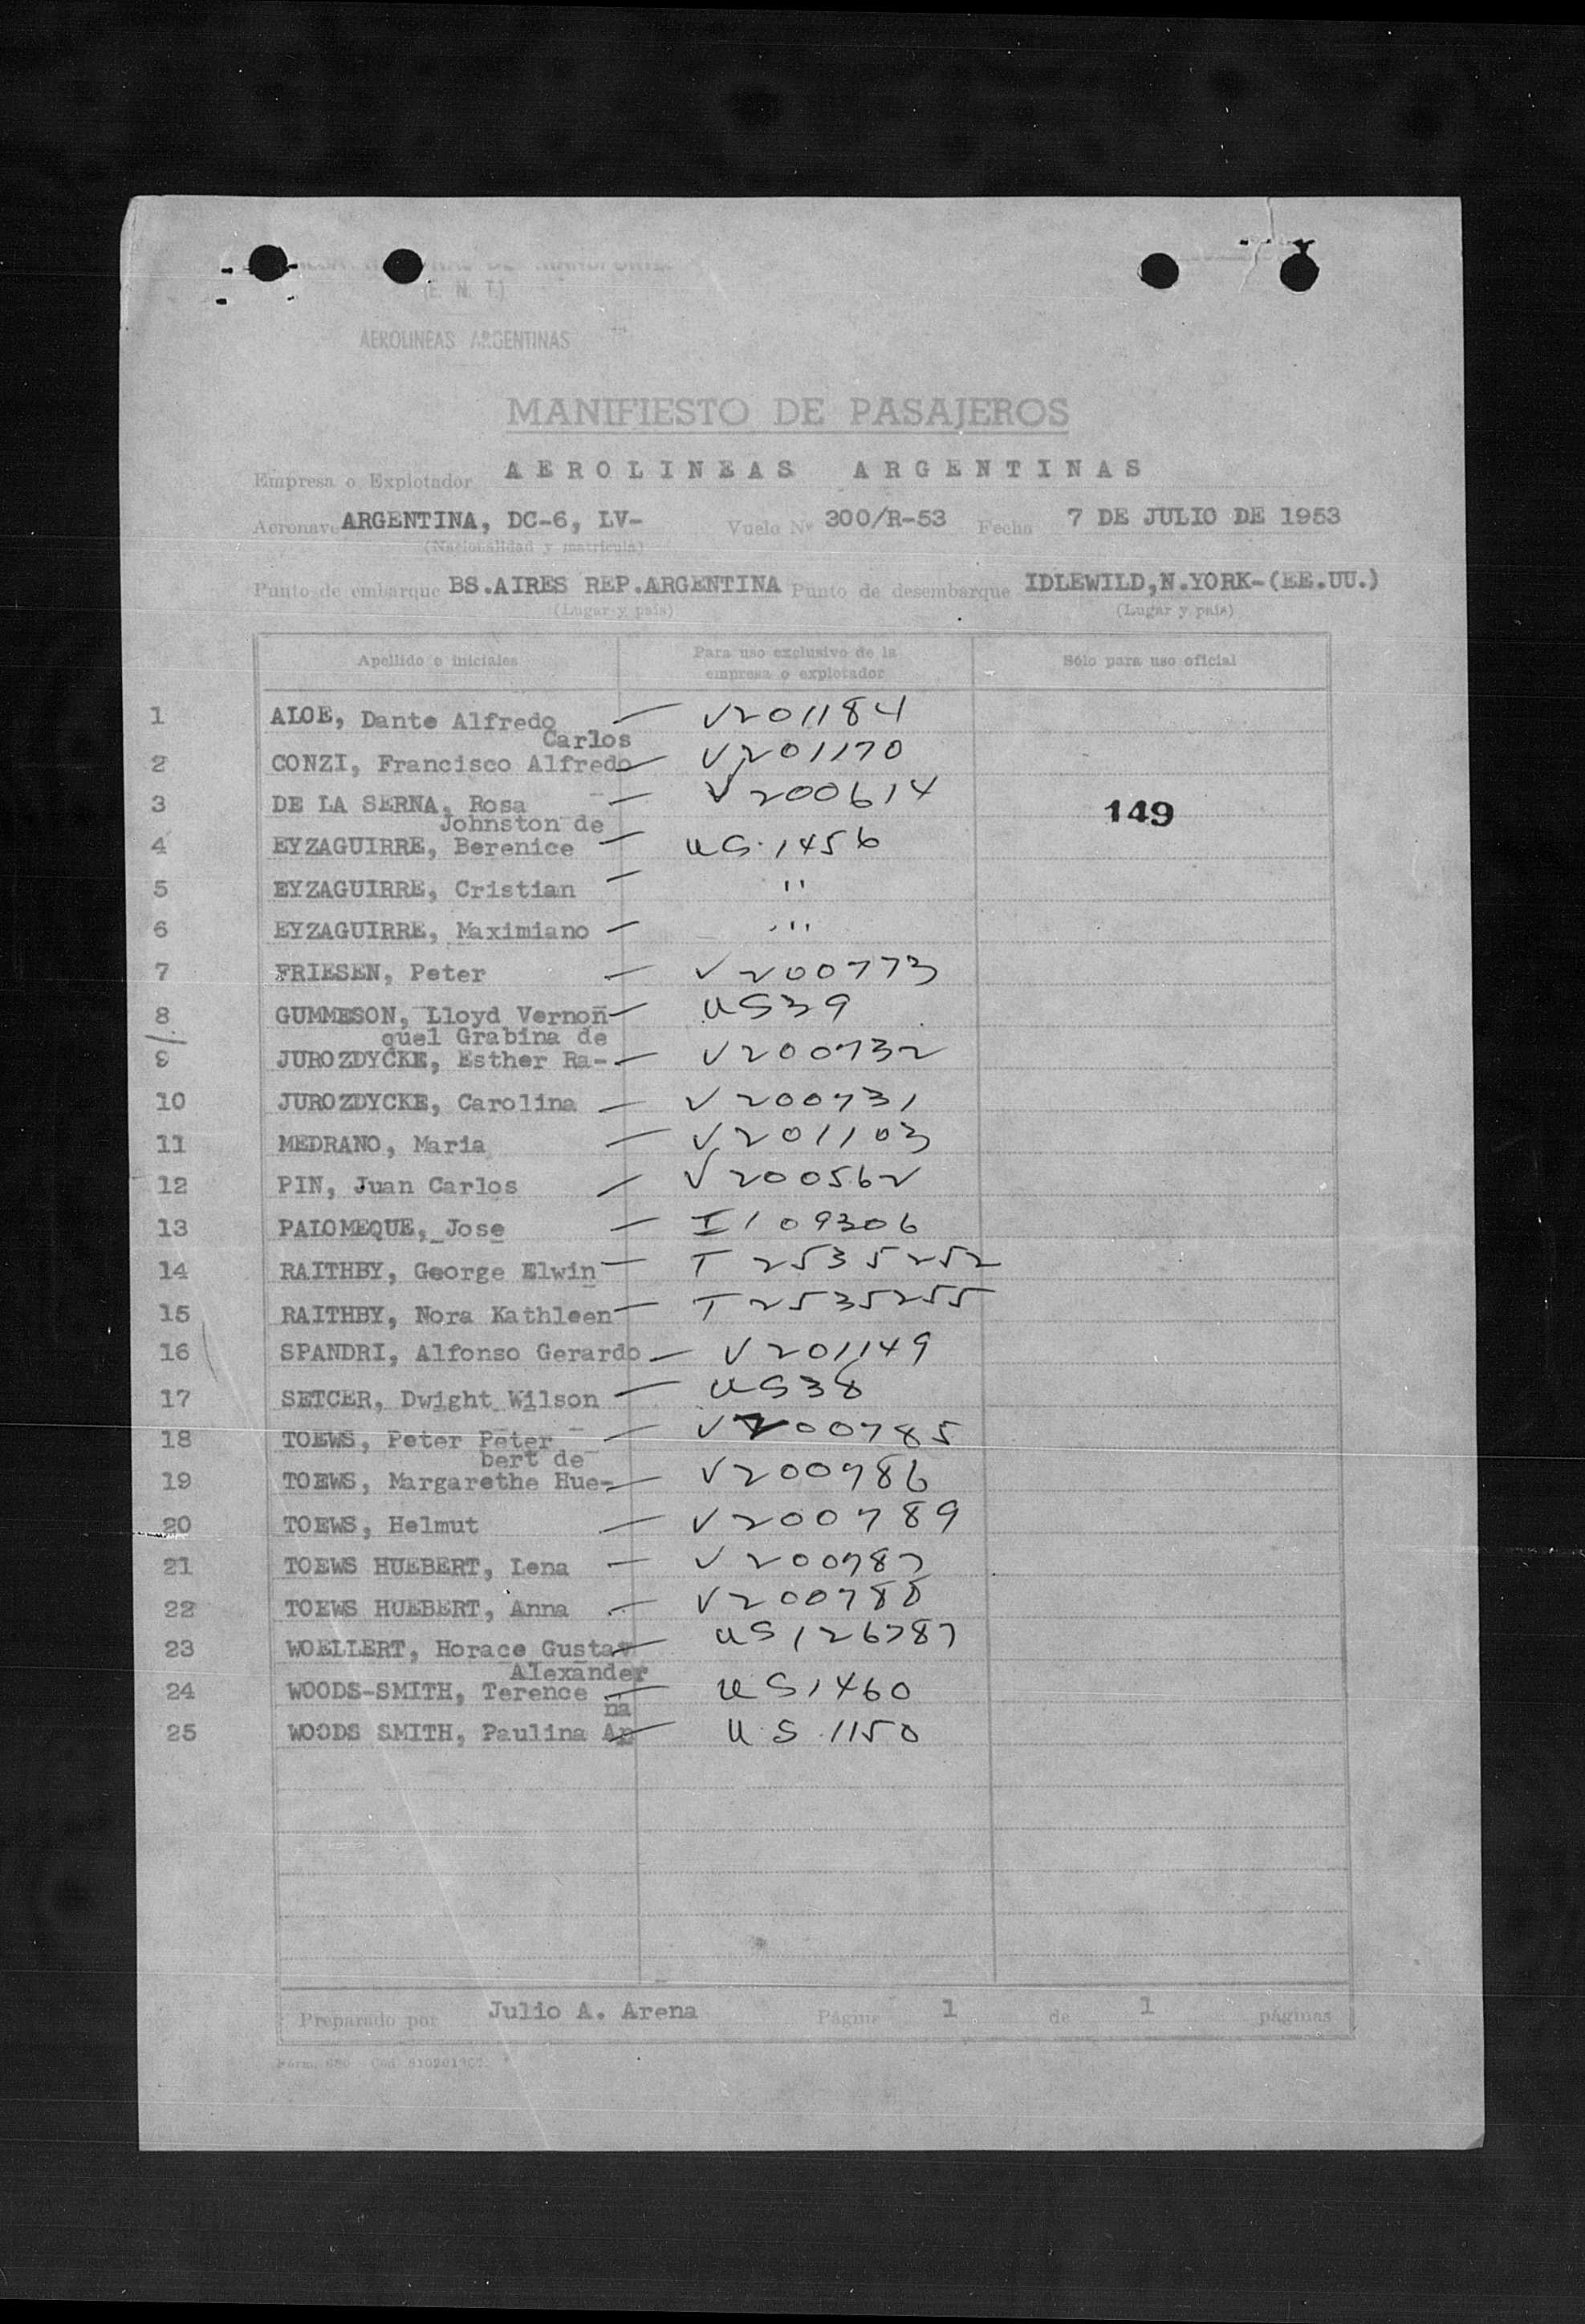 (E. N. T.)
AEROLINEAS ARGENTINAS
MANIFIESTO DE PASAJEROS
Empresa o Explotador AEROLINEAS ARGENTINAS
Aeronave ARGENTINA, DC-6, LV- Vuelo Nº 300/R-53 Fecha 7 DE JULIO DE 1953
(Nacionalidad y matricula)
Punto de embarque BS.AIRES REP.ARGENTINA Punto de desembarque IDLEWILD,N.YORK-(EE.UU.)
(Lugar y pais) (Lugar y pais)
Apellido e iniciales Para uso exclusivo de la empresa o explotador Sólo para uso oficial
1 ALOE, Dante Alfredo — V201184
Carlos
2 CONZI, Francisco Alfredo — V201170
3 DE LA SERNA, Rosa — V200614
149
Johnston de
4 EYZAGUIRRE, Berenice — US.1456
5 EYZAGUIRRE, Cristian — "
6 EYZAGUIRRE, Maximiano — "
7 FRIESEN, Peter — V200773
8 GUMMESON, Lloyd Vernon — US39
quel Grabina de
9 JUROZDYCKE, Esther Ra- — V200732
10 JUROZDYCKE, Carolina — V200731
11 MEDRANO, Maria — V201103
12 PIN, Juan Carlos — V200562
13 PALOMEQUE, Jose — I109306
14 RAITHBY, George Elwin — T2535252
15 RAITHBY, Nora Kathleen — T2535255
16 SPANDRI, Alfonso Gerardo — V201149
17 SETCER, Dwight Wilson — US38
18 TOEWS, Peter Peter — V200785
bert de
19 TOEWS, Margarethe Hue- — V200786
20 TOEWS, Helmut — V200789
21 TOEWS HUEBERT, Lena — V200787
22 TOEWS HUEBERT, Anna — V200788
23 WOELLERT, Horace Gustav — US126787
Alexander
24 WOODS-SMITH, Terence — US1460
na
25 WOODS SMITH, Paulina An — U.S.1150
Preparado por Julio A. Arena Página 1 de 1 páginas